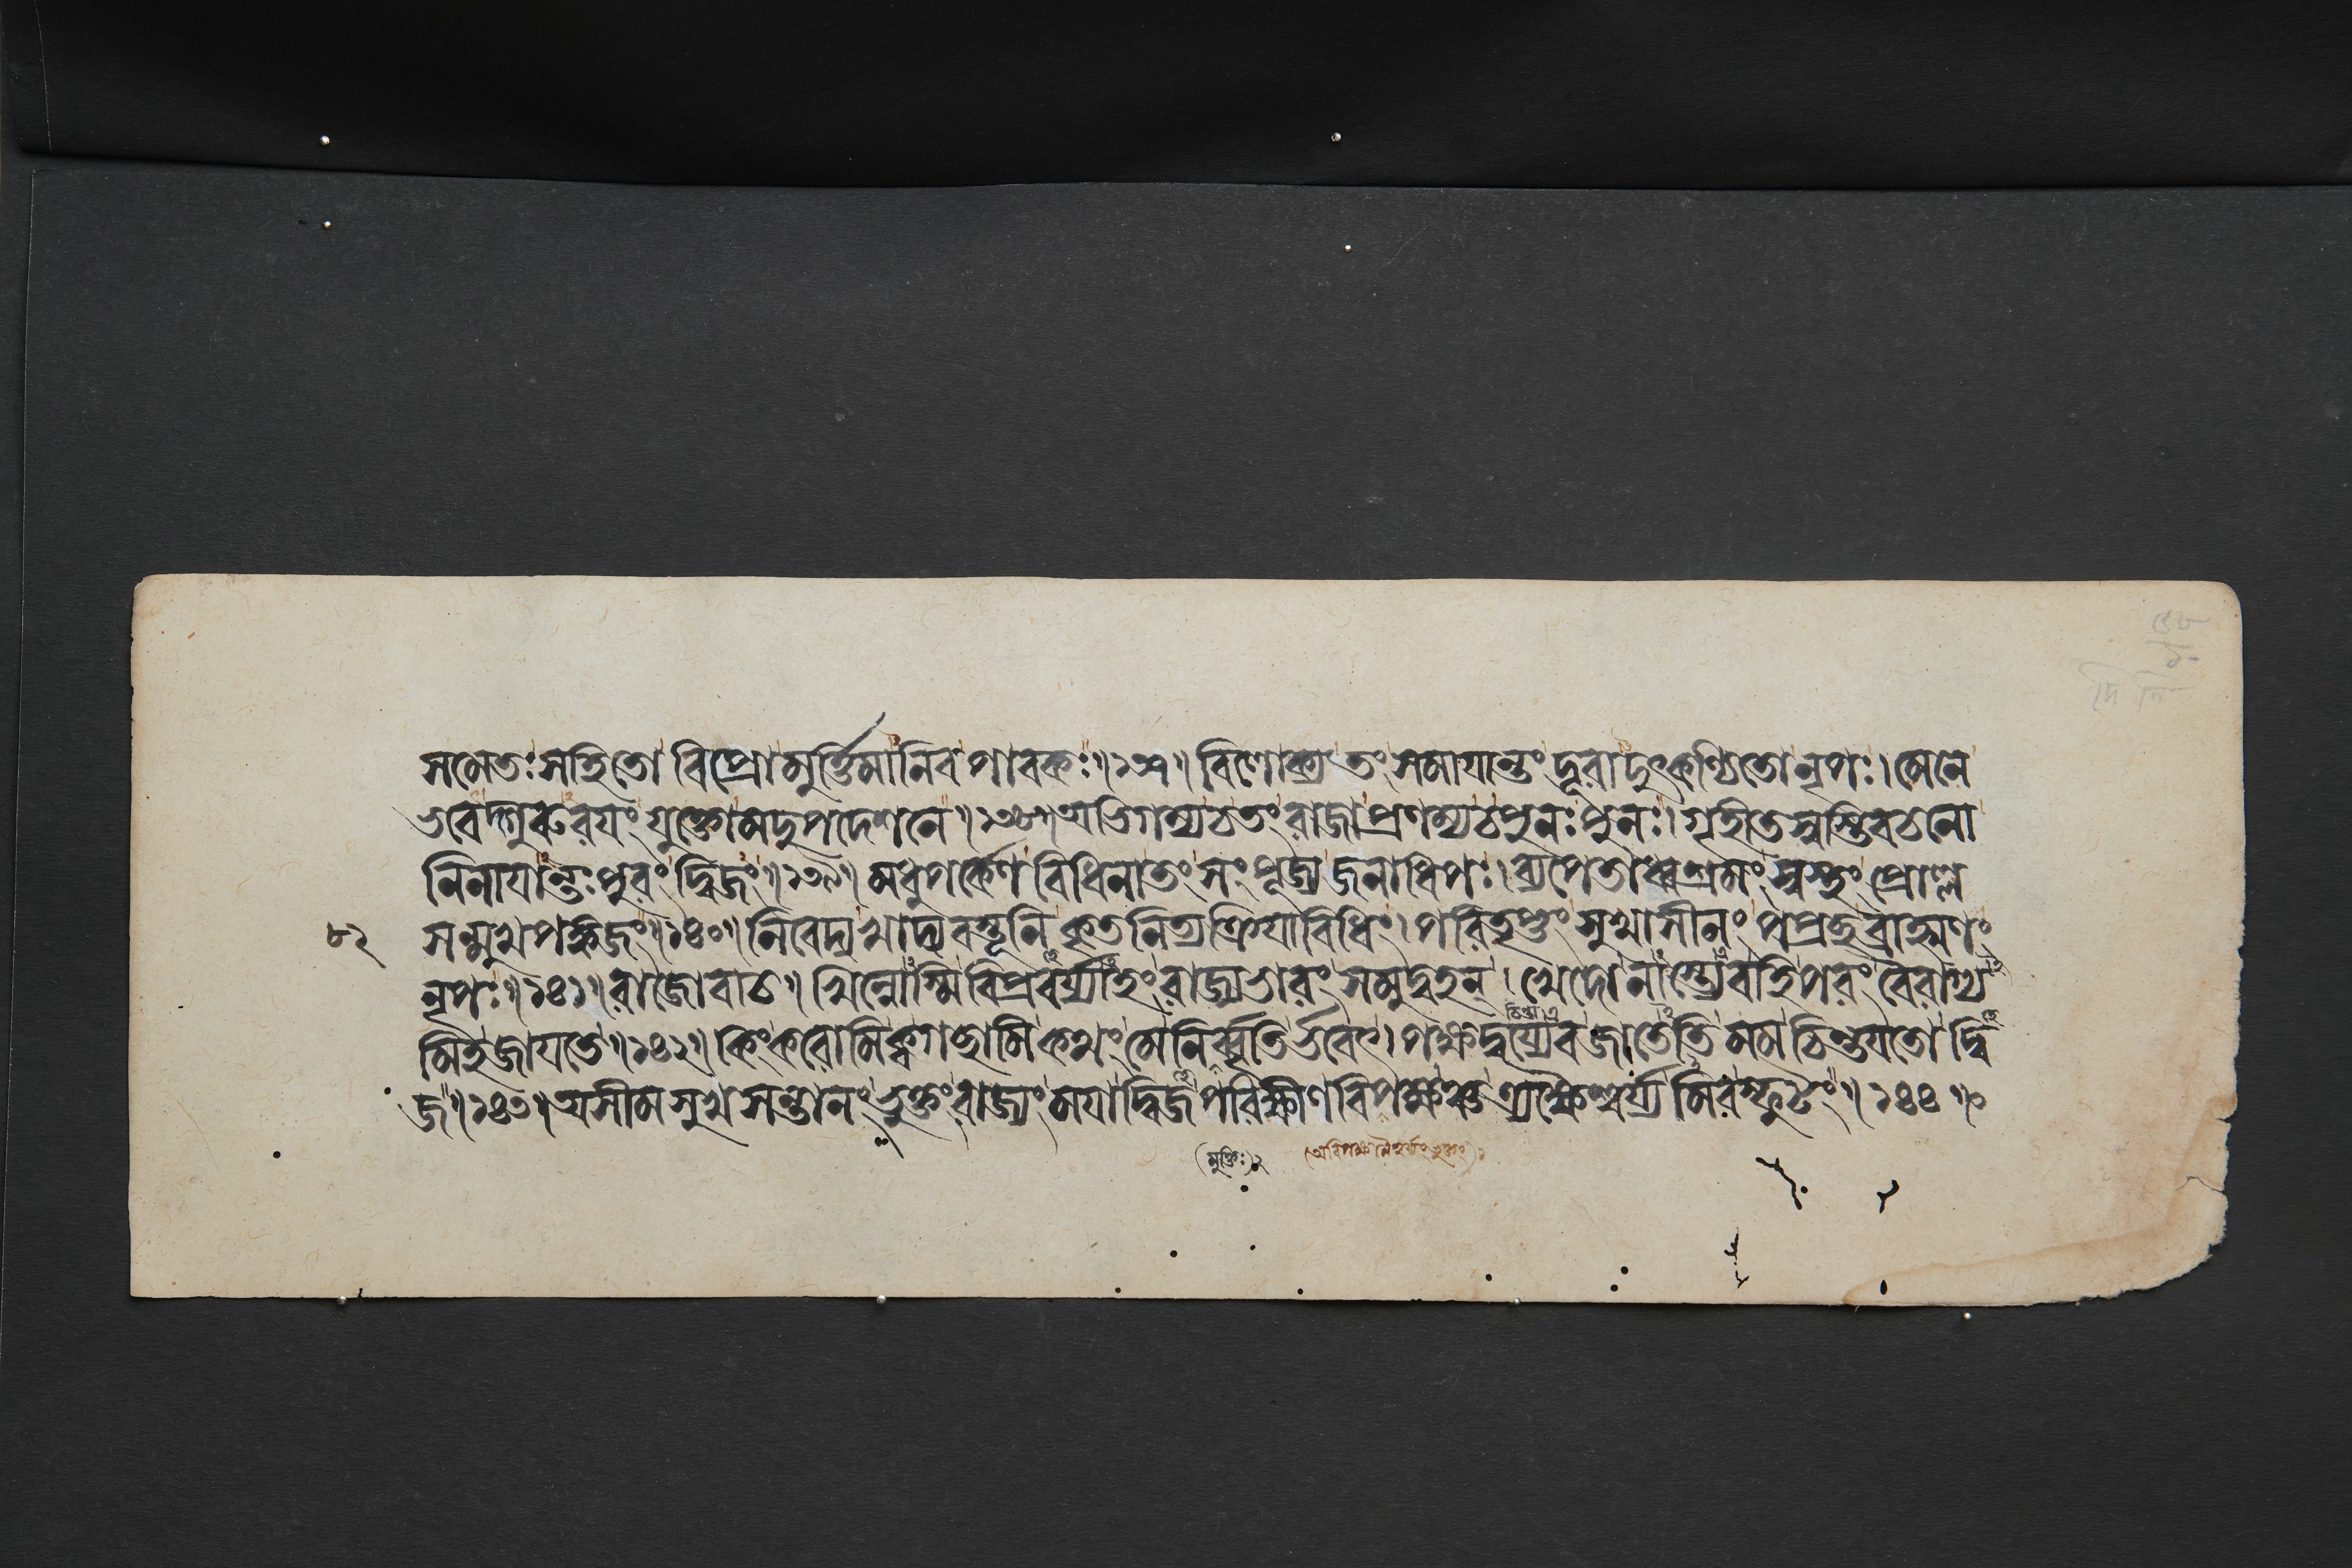 সমেতঃ সহিতো বিপ্রো মুর্ত্তিমানিব পাবকঃ॥১৩৭॥ বিলোক্য তং সমাযান্তং দূরাদুৎকণ্ঠিতো নৃপঃ। মেনে
ভবেদ্গুরুরযং যুক্তো মদুপদেশনে॥১৩৮॥ অভিগম্য চ তং রাজা প্রণম্য চ পুনঃ পুনঃ। গৃহীতস্বস্তিবচনো
নিনাযান্তঃপুরং দ্বিজং॥১৩৯॥ মধুপর্কেণ বিধিনা তং সংপূজ্য জনাধিপঃ। ব্যপেতাধ্বশ্রমং স্বস্তং প্রোল্ল
সন্মুখপঙ্কজং॥১৪০॥ নিবেদ্য খাদ্যবস্তূনি কৃতনিত্যক্রিযাবিধিং। পরিতৃপ্তং সুখাসীনং পপ্রচ্ছ ব্রাহ্মণং
৮২
নৃপঃ॥১৪১॥ রাজোবাচ॥ খিন্নোস্মি বিপ্রবর্য্যাহং রাজ্যভারং সমুদ্বহন্। খেদো নাস্ত্যেব হি পরং বৈরাগ্য
মিহ জাযতে॥১৪২॥ কিং করোমি ক্ব গচ্ছামি কথং মে নির্ব্বৃতির্ভবেৎ। পক্ষদ্বয্যেব জাতেতি মম চিন্তযতো দ্বি
চিন্তা
জ॥১৪৩॥ অসীমসুখসন্তানং ভুক্তং রাজ্যং মযা দ্বিজ পরিক্ষীণবিপক্ষঞ্চ
মিব স্ফুটং॥১৪৪॥
(মুক্তিঃ) ২